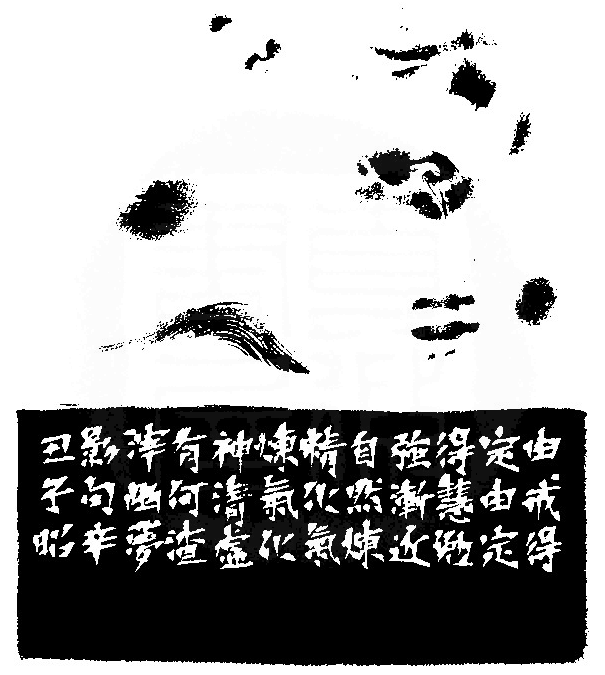 由戒得
定由定
得慧勉
強漸近
自然煉
精化氣
煉氣化
神清虛
有何渣
滓幽夢
影句辛
丑子昭